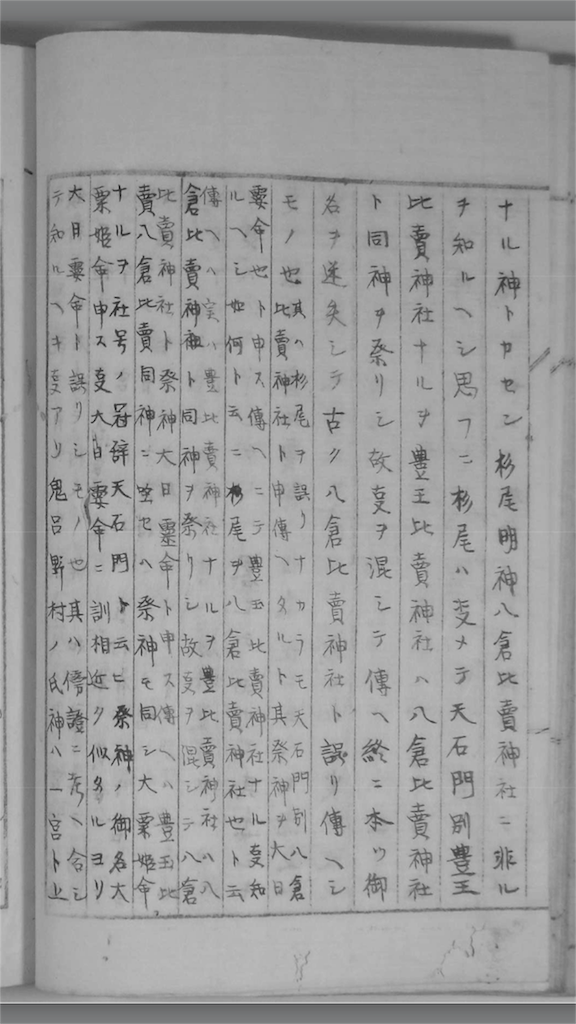 ナル神トカセン杉尾明神八倉比賣神社ニ非ル
ヲ知ルヘシ思フニ杉尾ハ変メテ天石門別豊玉
比賣神社ナルヲ豊玉比賣神社ハ八倉比賣神社
ト同神ヲ祭リシ故叓ヲ混シテ傳ヘ終ニ本ツ御
名ヲ遂失シテ古ク八倉比賣神社ト誤リ傳ヘシ
モノ也
其ハ杉尾ヲ誤リナカラモ天石門別八倉
比賣神社ト申傳ヘタルト其祭神ヲ大日
孁命也ト申ス傳ヘニテ豊玉比賣神社ナル叓知
ルヘシ如何ト云ニ杉尾ヲ八倉比賣神社也ト云
傳ヘハ実ハ豊比賣神社ナルヲ豊比賣神社ハ八
倉比賣神社ト同神ヲ祭リシ故叓ヲ混シテ八倉
比賣神社ト祭神大日孁命ト申ス傳ヘハ豊玉比
賣八倉比賣同神ニ坐セハ祭神モ同シ大粟姫命
ナルヲ社号ノ冠辞天石門ト云ヒ祭神ノ御名大
粟姫命申ス叓大日孁命ニ訓相近ク似タルヨリ
大日孁命ト誤リシモノ也其ハ傍證ニ考ヘ合シ
テ知ルヘキ叓アリ鬼呂野村ノ氏神ハ一宮ト上